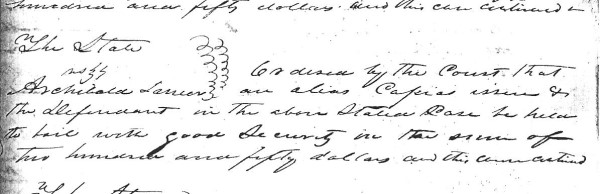 hundred and fifty dollars and this case continued
The State
vs 
Archibald Lanier Ordered by the Court that
an alias Capias issue &
the defendant in the above Stated Case be held
to bail with good Security in the sum of
two hundred and fifty dollars and this case continued